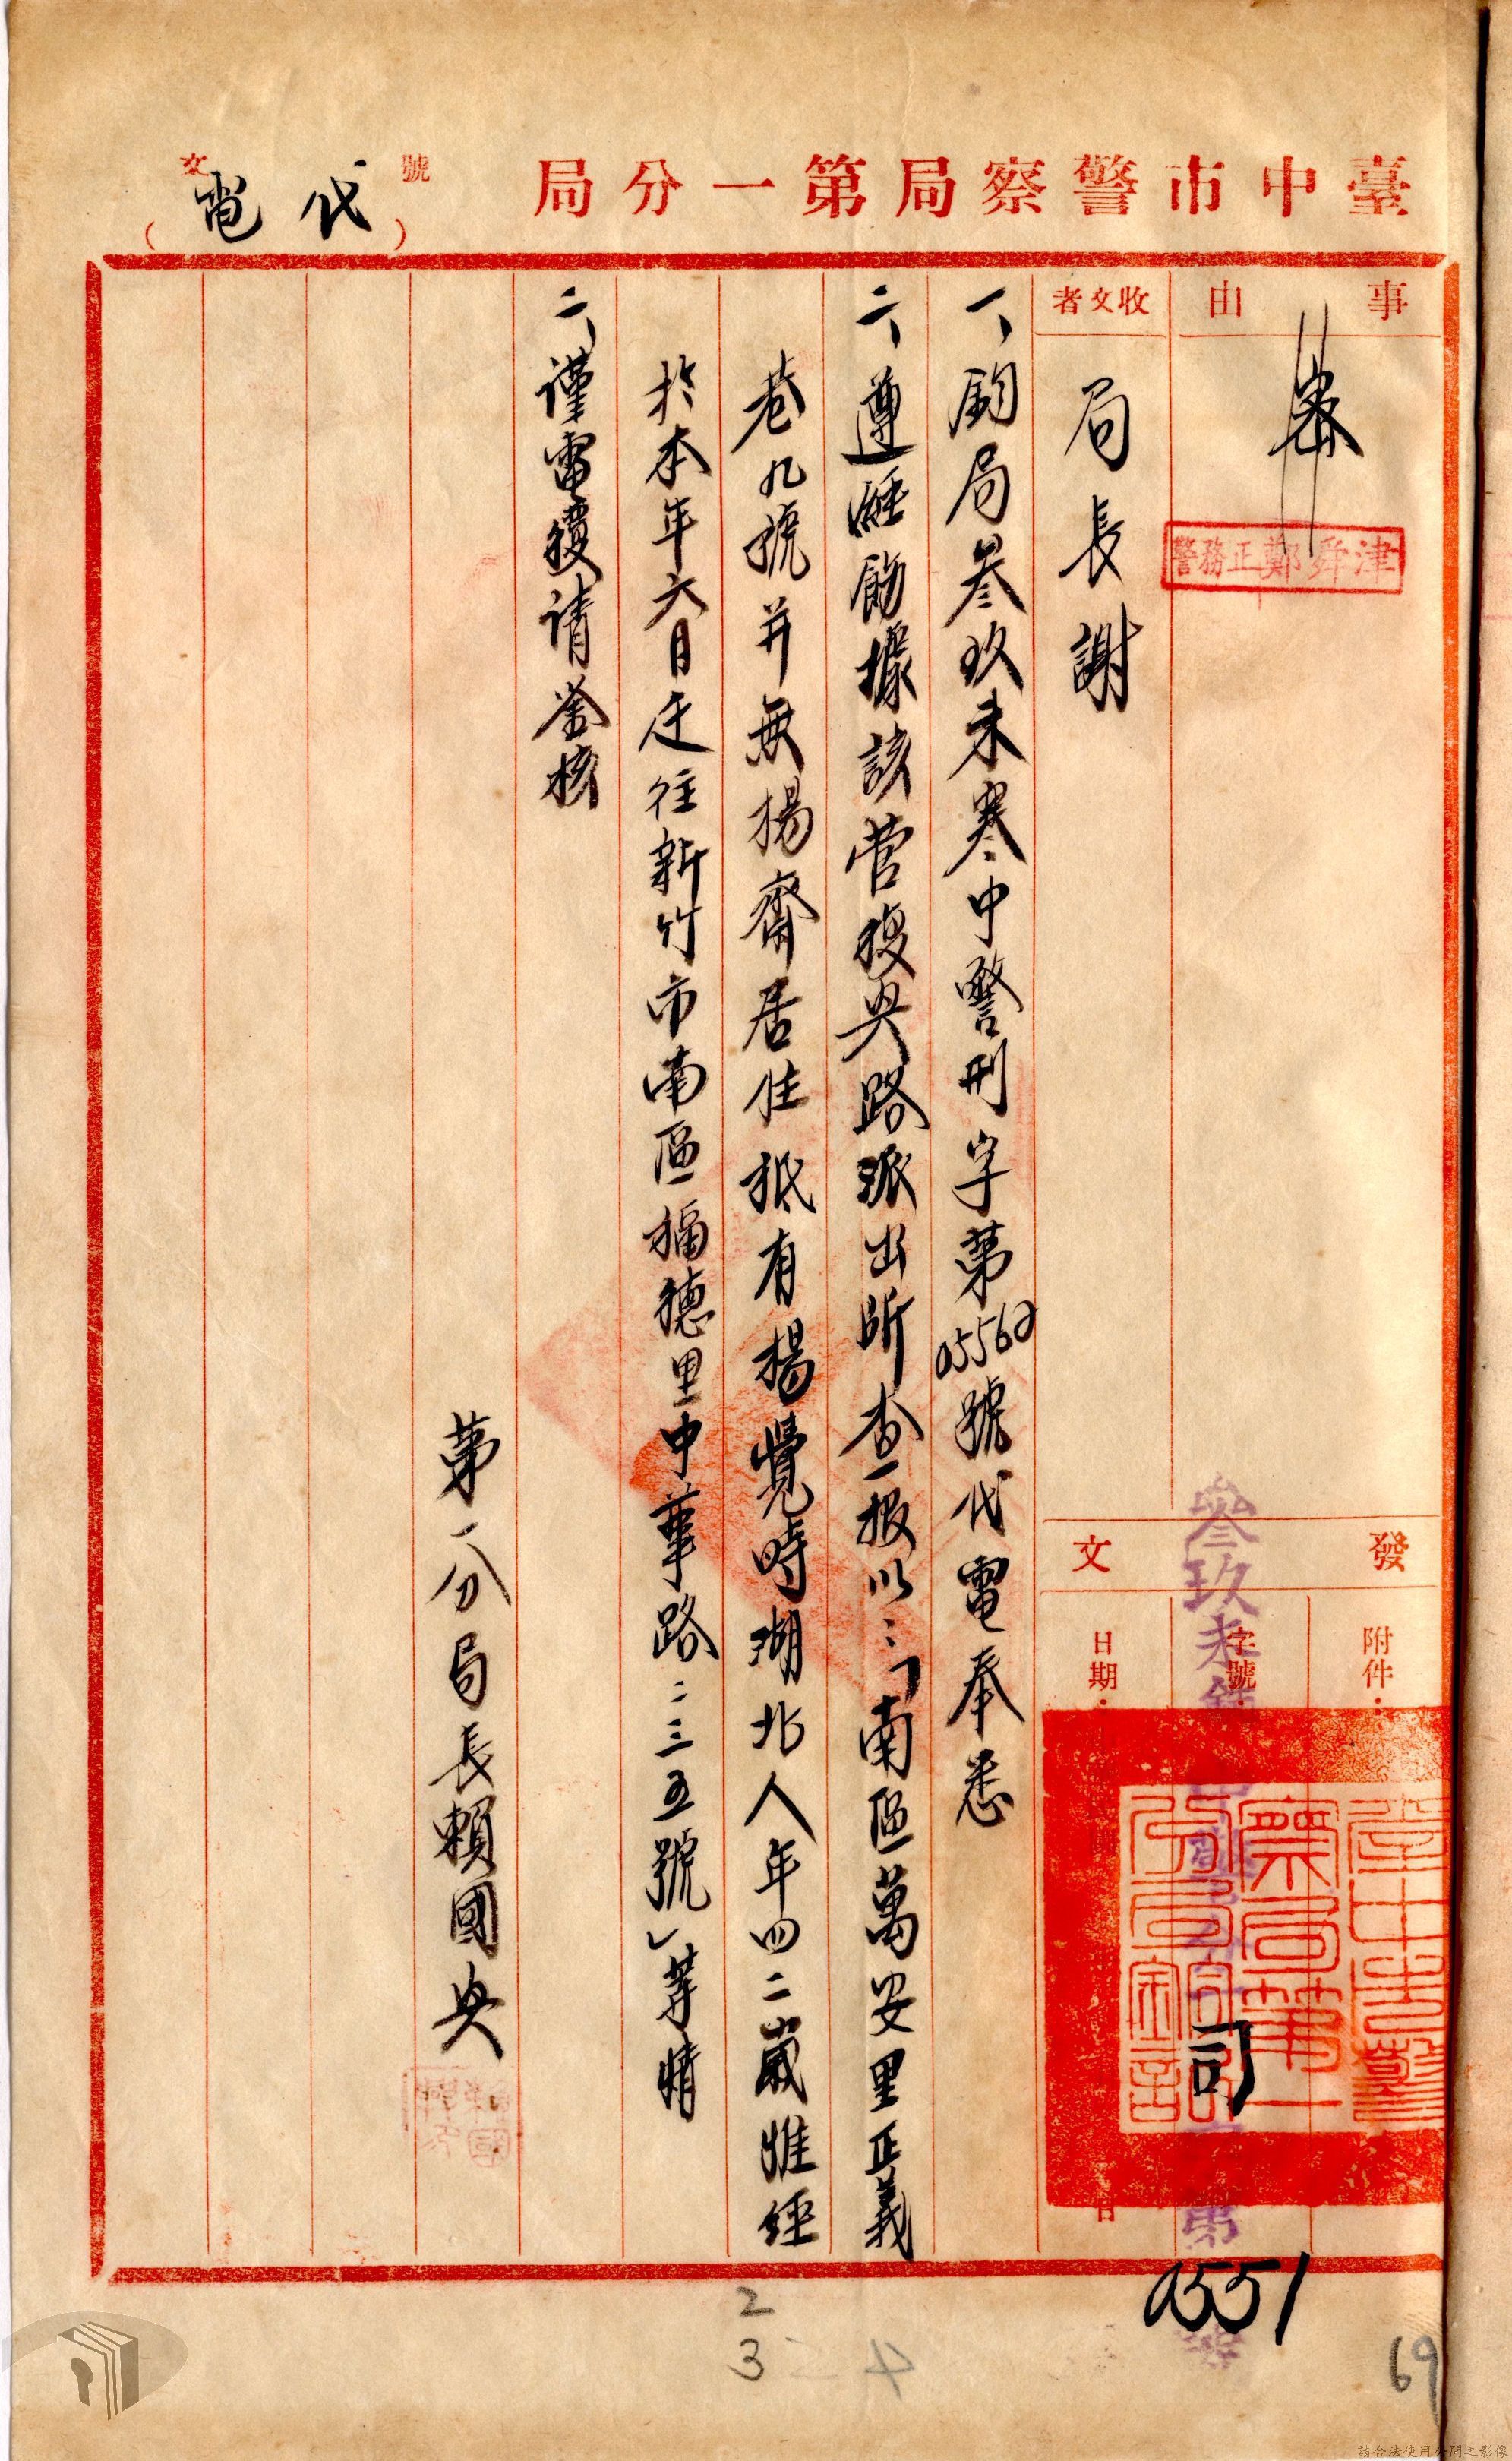 臺中市警察局第一分局
號
文
（代電）
事由
密
警務正鄭舜津
收文者
局長謝
發文
附件：
字號：
日期：
日
參玖未
第
號
司
0551
臺中市警察局第一分局鈐記
一、鈞局叁玖未寒中警刑字第05562號代電奉悉
二、遵經飭據該管復興路派出所查報以：「南區萬安里正義
巷九號并無楊齋居住祇有楊覺時湖北人年四二歲惟經
於本年六月迁往新竹市南區福德里中華路二三五號」等情
二、謹電復请鉴核
第一分局長賴國興
2
3
4
69
請合法使用公開之影像